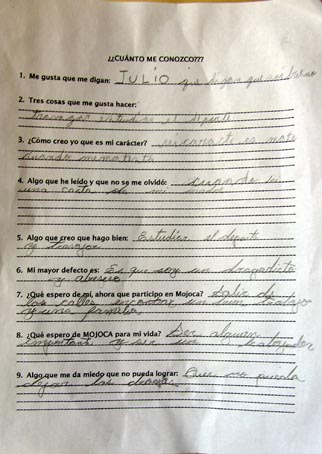 ¿¿CUÁNTO ME CONOZCO???
1. Me gusta que me digan: JULIO que digan que soy bueno
2. Tres cosas que me gusta hacer:
trabajar estudiar el deporte
3. ¿Cómo creo yo que es mi carácter?
cuando
4. Algo que he leído y que no se me olvidó: cuando lei
una carta de mi
5. Algo que creo que hago bien: Estudiar el deporte
y trabajar
6. Mi mayor defecto es: Es que soy un drogadicto
y abusivo
7. ¿Qué espero de mi, ahora que participo en Mojoca? Salir de
las calles encontrar un buen trabajo
y una familia
8. ¿Qué espero de MOJOCA para mi vida? Ser alguien
importante y ser un trabajador
9. Algo que me da miedo que no pueda lograr: Que no pueda
dejar las drogas